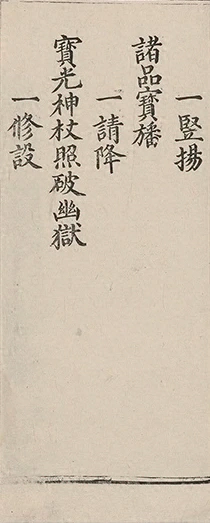 一豎揚
諸品寶旛
一請降
寶光神杖照破幽獄
一修設